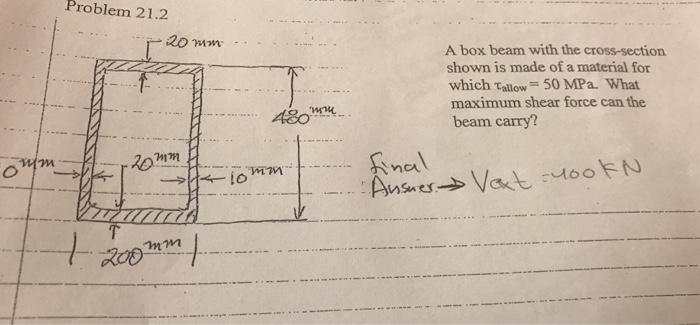 Problem 21.2
20 mm
A box beam with the cross-section
shown is made of a material for
which τallow = 50 MPa. What
maximum shear force can the
beam carry?
480 mm
0 mm
20 mm
10 mm
final
Answer → Vext = 400 KN
200 mm